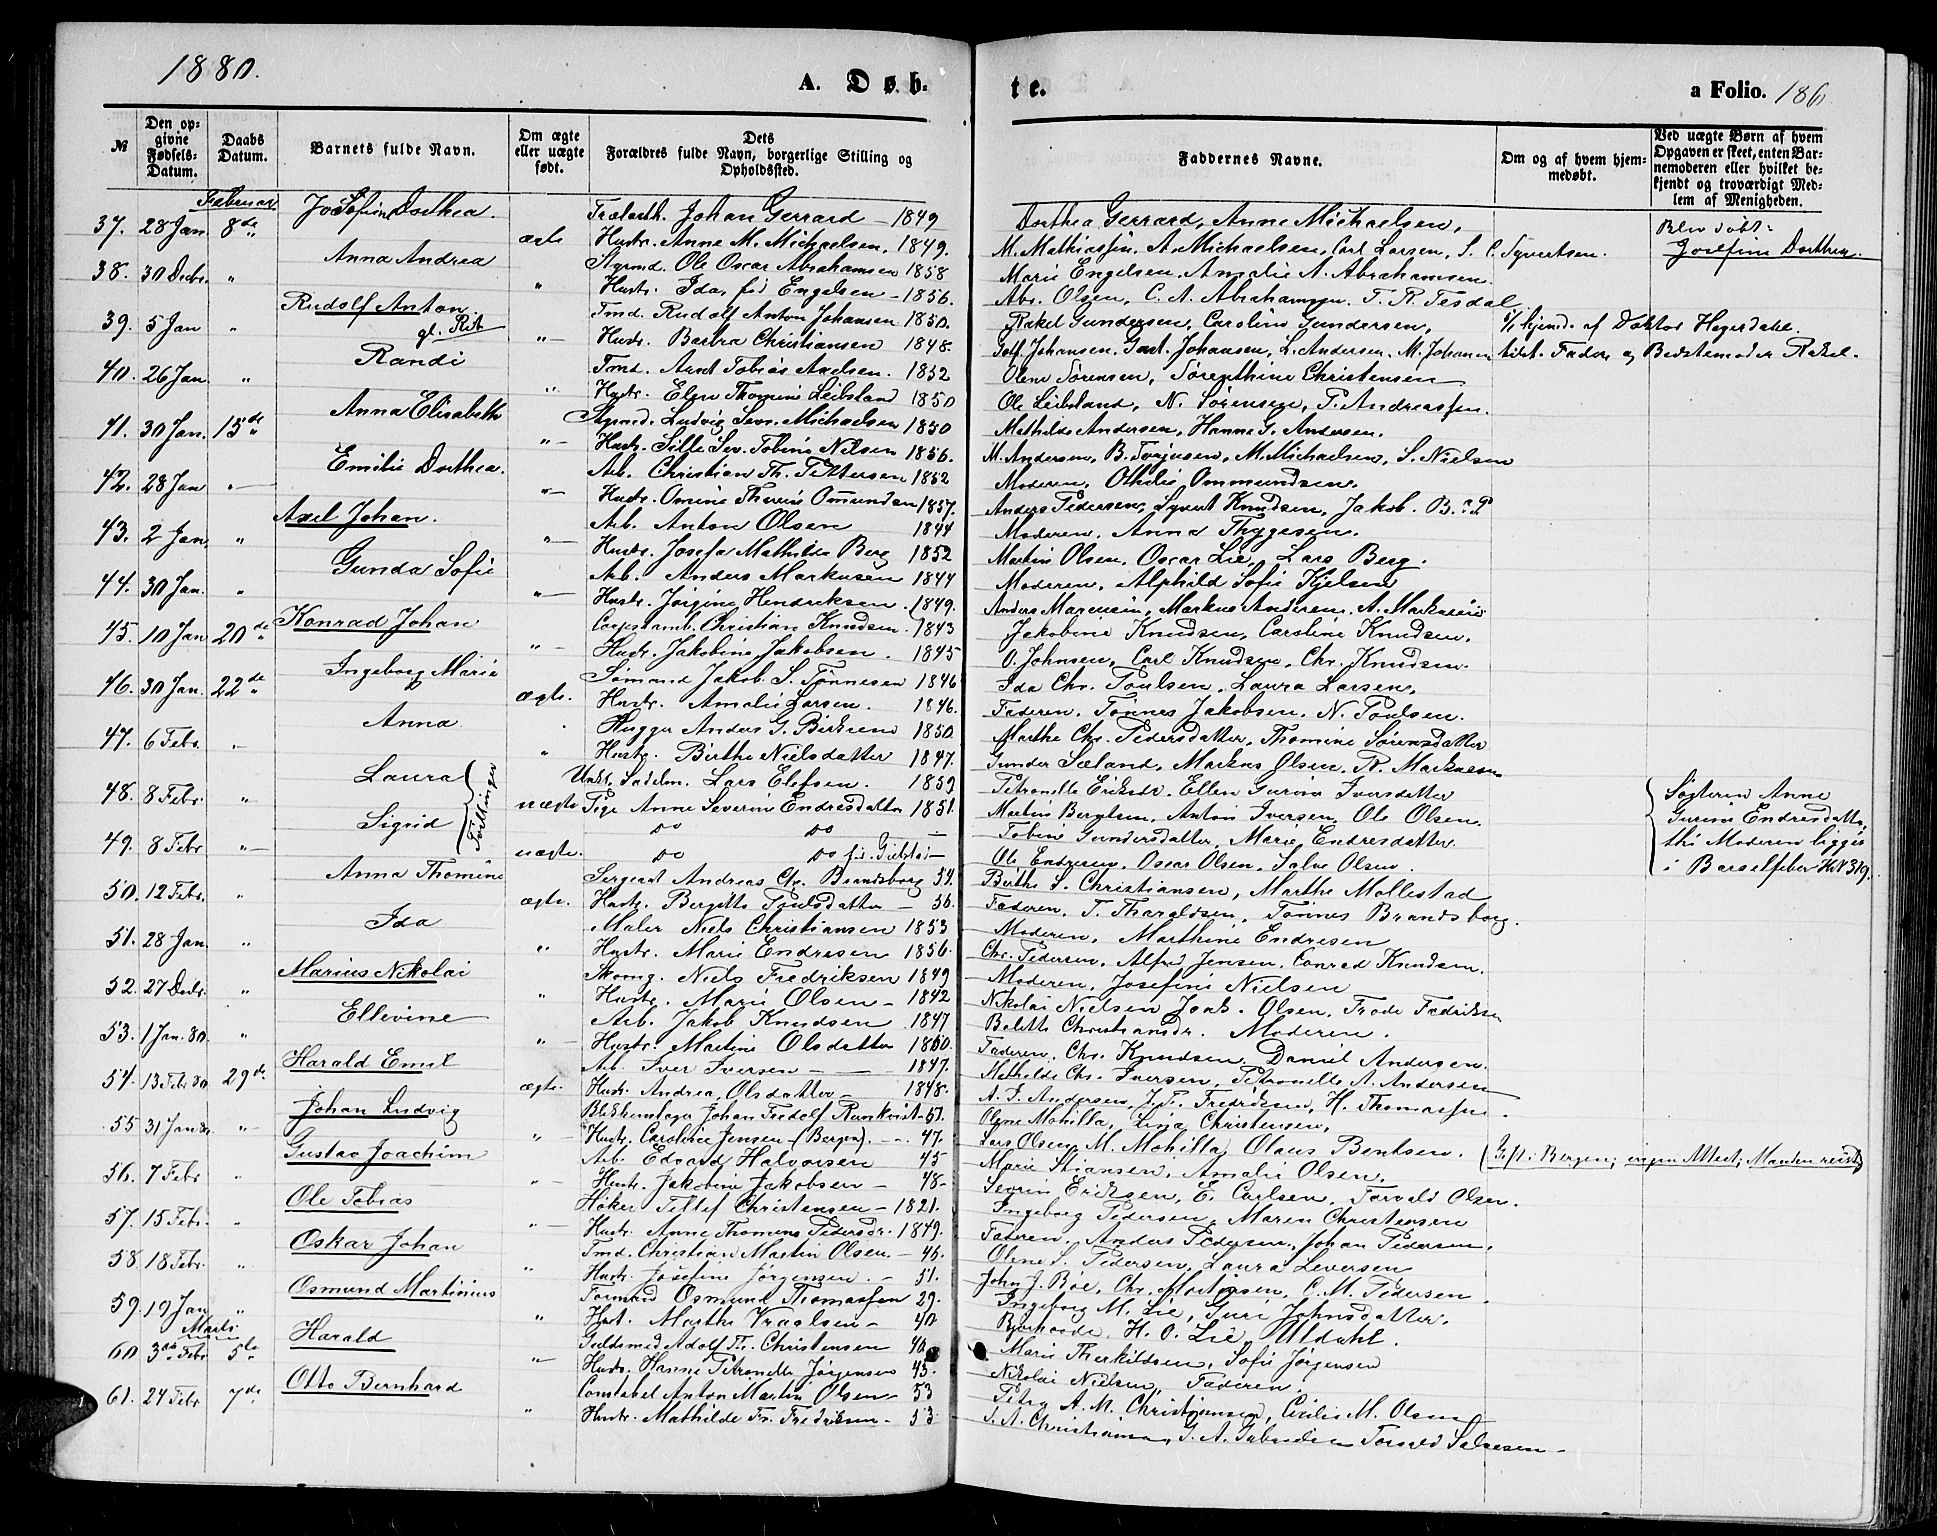 1880.
A. Døb-
te.
a Folio. 186
№
Den opgivne Fødsels-Datum.
Daabs Datum.
Barnets fulde Navn.
Om ægte eller uægte født.
Dets Forældres fulde Navn, borgerlige Stilling og Opholdssted.
Faddernes Navne.
Om og af hvem hjemmedøbt.
Ved uægte Børn af hvem Opgaven er skeet, enten Barnemoderen eller hvilket bekjendt og troværdigt Medlem af Menigheden.
Februar
37. 28 Jan. 8de Dorthea. Johan Gerrard – 1849 Dorthea Gerrard, Anne Michaelsen,
ægte Hustr. Anne M. Michaelsen, 1849. M. Mathiassen, A. Michaelsen, Carl Larsen, S. C. Syvertsen. Blev døbt: Josefine Dorthea.
38. 30 Decbr. " Anna Andrea Styrmd. Ole Oscar Abrahamsen 1858 Marie Engelsen, Amalie A. Abrahamsen.
" Hustr. Ida, fød Engelsen – 1856. Abr. Olsen, C. A. Abrahamsen, T. R. Tesdal
39. 5 Jan " Rudolf Anton Tmd. Rudolf Anton Johansen 1850. Rakel Gundersen, Caroline Gundersen, hjemd. af Doktor Hagerdahl.
"– Hustr. Barbra Christiansen 1848. Johansen, Johansen, L. Andersen, M. Johansen Fadder og Bedstemoder Rakel.
40. 26 Jan. " Randi Tmd. Arnt Tobias Axelsen. 1852 Olene Sørensen, Sørenthine Christensen
" Hustr. Elen Thomine Leibsland 1850 Ole Leibsland, N. Sørensen, T. Andreassen.
41. 30 Jan. 15de Anna Elisabeth Styrmd. Ludvig Sevr. Michaelsen 1850 Mathilde Andersen, Hanne G. Andersen.
"– Hustr. Sille Sev. Tobine Nilsen 1856. M. Andersen, B. Torjusen, M. Michaelsen, S. Nielsen
42. 28 Jan "– Emilie Dorthea. Arb. Christian Th. Pettersen 1852 Moderen, Othilie Ommundsen,
"– Hustr. Omine Therese Omundsen 1857. Anders Pedersen, Syvert Knudsen, Jakob. B.
43. 2 Jan. " Axel Johan. Arb. Anton Olsen 1844 Moderen, Anna Thygesen.
"– Hustr. Josefa Mathilde Berg 1852 Martin Olsen, Oscar Lie, Lars Berg.
44. 30 Jan. " Gunda Sofie Arb. Anders Markusen 1844 Moderen, Alphild Sofie Kjelsen
"– Hustr. Jørgine Hendriksen. 1849. Anders Marcusen, Markus Andersen, A. Markusen
45. 10 Jan 20de Konrad Johan Christian Knudsen. 1843 Jakobine Knudsen, Caroline Knudsen,
"– Hustr. Jakobine Jakobsen. 1845 O. Johnsen, Carl Knudsen, Chr. Knudsen.
46. 30 Jan. 22de Ingeborg Marie Sømand Jakob S. Tønnesen 1846 Ida Chr. Poulsen, Laura Larsen,
ægte. Hustr. Amalie Larsen. 1846. Faderen, Tønnes Jakobsen, N. Poulsen.
47. 6 Febr. – Anna Hugger Anders G. Birkrem 1850 Marthe Chr. Pedersdatter, Thomine Sørensdatter
" Hustr. Birthe Nielsdatter 1847. Gunder Sæland, Markus Olsen, R. Markusen
48. 8 Febr. "– Laura Unkl. Sadelm. Lars Elefsen. 1859 Petronelle Eriksdr. Ellen Gurine Iversdatter
Tvillinger uægte Pige Anne Severine Endresdatter 1851. Martin Bergtsen, Anton Iversen, Ole Olsen. Søsteren Anne
49. 8 Febr "– Sigrid do do – Tobine Gundersdatter, Marie Endresdatter. Gurine Endresdatter,
uægte. do do Ole Endresen, Oscar Olsen, Salve Olsen. thi Moderen ligger
50. 12 Febr. " Anna Thomine Sergeant Andreas Chr. Brandsborg 54. Birthe S. Christiansen, Marthe Mollestad i Barselfeber
ægte. Hustr. Bergitte Poulsdatter – 56. Faderen, T. Tharaldsen, Tønnes Brandsborg.
51. 28 Jan. " Ida Maler Niels Christiansen 1853 Moderen, Marthine Endresen
" Hustr. Marie Endresen 1856. Chr. Pedersen, Alfred Jensen, Conrad Knudsen.
52. 27 Decbr. " Marius Nikolai Skomg. Niels Fredriksen 1849 Moderen, Josefine Nielsen
" Hustr. Marie Olsen – 1842 Nikolai Nielsen, Jsak. Olsen, Frode Fredriksen
53. 1 Jan. 80. " Ellevine Arb. Jakob Knudsen 1847 Belette Christiansdr. Moderen.
"– Hustr. Martine Olsdatter 1860. Faderen, Chr. Knudsen, Daniel Andersen.
54. 13 Febr 80. 29de Harald Emil Arb. Iver Iversen – 1847. Mathilde Chr. Iversen, Petronelle A. Andersen
ægte. Hustr. Andrea Olsdatter – 1848. A. T. Andersen, J. T. Fredriksen, H. Thomassen.
55 31 Jan 80. "– Johan Ludvig Blikkenslager Johan Fredolf Rannkvist – 51. Olene Mohilla, Lina Christensen,
"– Hustr. Caroline Jensen (Bergen). – 47. Lars Olsen, M. Mohilla, Olaus Bentsen. Gift i Bergen; ingen Attest; Manden reist
56. 7 Febr " Gustav Joachim Arb. Edvard Halvorsen 45 Marie Stiansen, Amalie Olsen.
"– Hustr. Jakobine Jakobsen – 48– Severin Eriksen, E. Carlsen, Torvald Olsen.
57. 15 Febr. " Ole Tobias Høker Tellef Christensen – 1821. Ingeborg Pedersen, Maren Christensen
"– Hustr. Anne Thomine Pedersdr. 1849. Faderen, Anders Pedersen, Johan Pedersen,
58. 18 Febr. " Oskar Johan Tmd. Christian Martin Olsen. – 46. Olene S. Pedersen, Laura Leversen
" Hustr. Josefine Jørgensen. – 51. John J. Bøe, Chr. Mortensen, C. M. Pedersen
59. 19 Jan " Osmund Martinius Formand Osmund Thomassen 29. Ingeborg M. Lie, Guri Johnsdatter,
" Hust. Marthe Vraalsen – 40 H. O. Lie, Uldahl.
Marts
60 Febr 5te Harald Guldsmed Adolf Th. Christensen 40 Marie Therkildsen, Sofie Jørgensen
"– Hustr. Hanne Petronelle Jørgensen 45. Nikolai Nielsen, Faderen.
61. 24 Febr 7de Otto Bernhard Constabel Anton Martin Olsen – 53 Petra A. M. Christiansen, Cecilie M. Olsen
" Hustr. Mathilde Fr. Fredriksen – 53. S. A. Christiansen, G. A. Gabrielsen Torvald Salvesen –